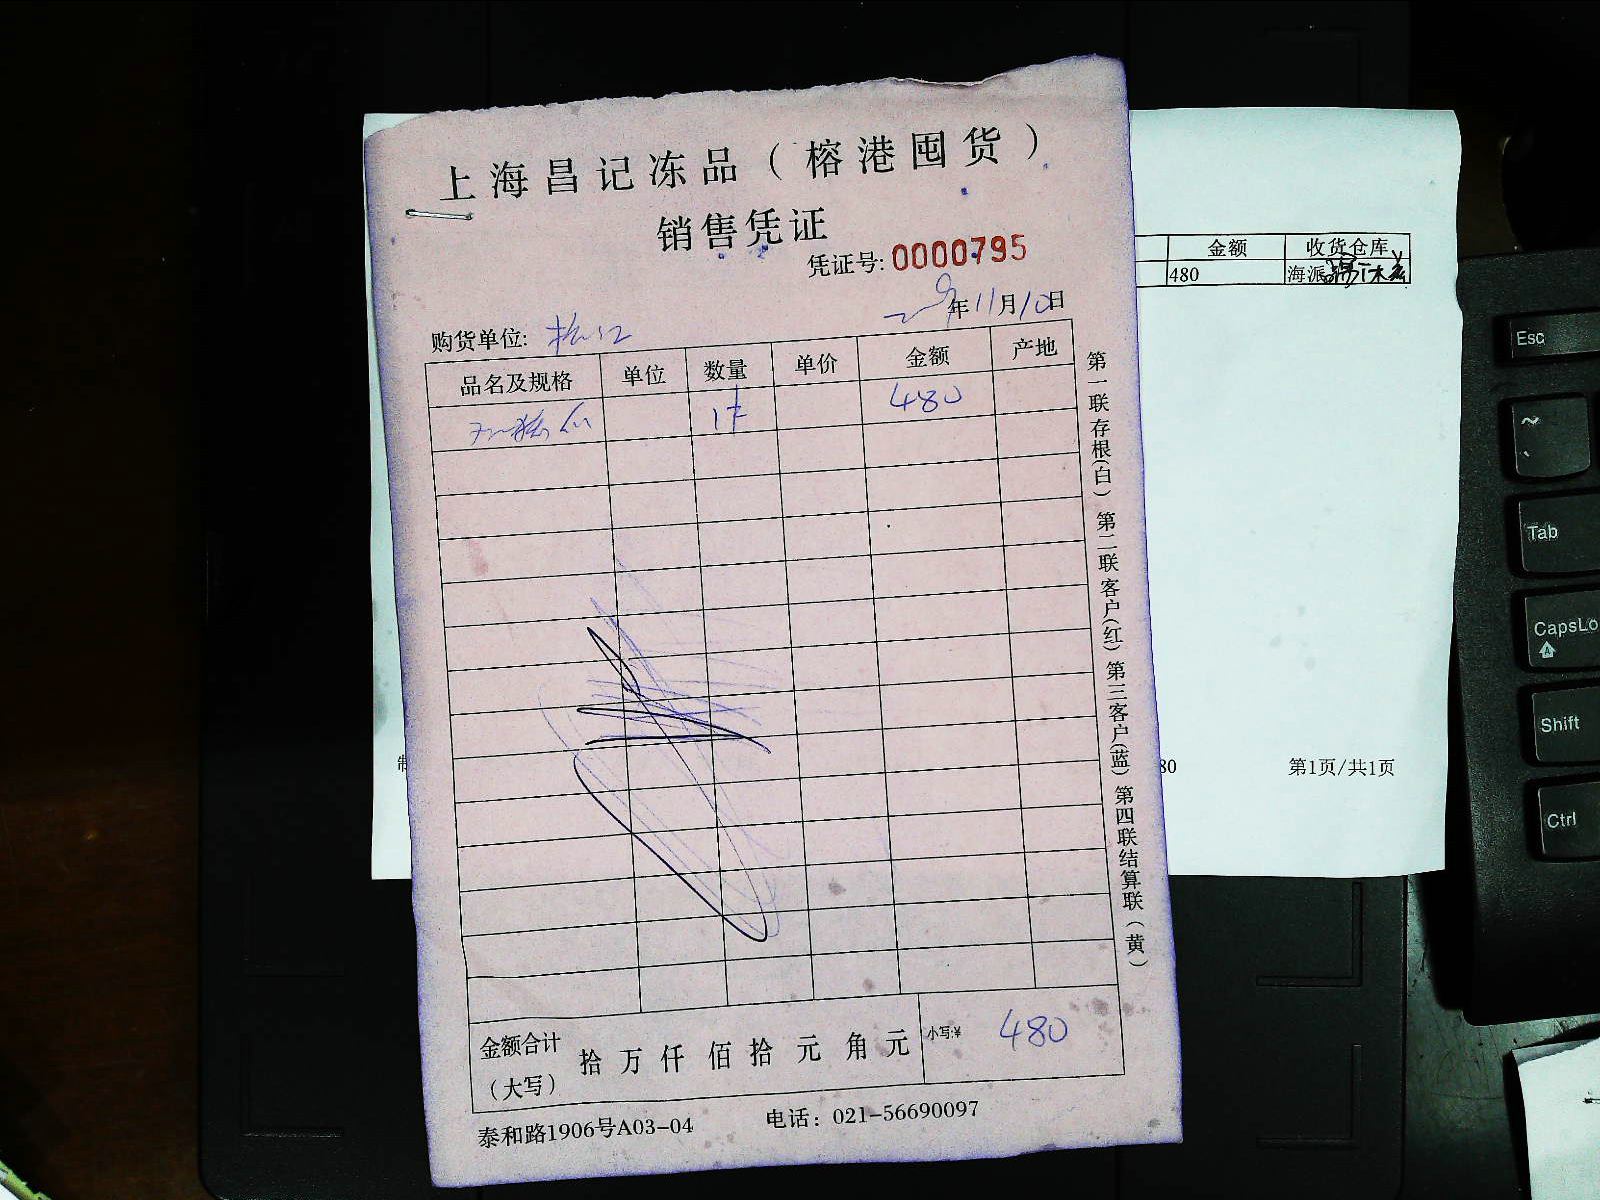 上海昌记冻品（榕港囤货）
销售凭证
凭证号: 0000795
年11月10日
购货单位: 松江
品名及规格 单位 数量 单价 金额 产地
1件 480
金额合计（大写） 拾 万 仟 佰 拾 元 角 元 小写:¥ 480
泰和路1906号A03-04 电话：021-56690097
第一联存根(白) 第二联客户(红) 第三客户(蓝) 第四联结算联(黄)
金额 收货仓库
480 海派
制
80 第1页/共1页
Esc
~
Tab
CapsLo
Shift
Ctrl